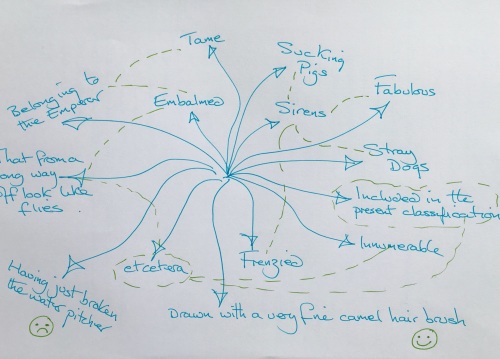 Tame
Sucking
Pigs
Fabulous
Belonging to
the Emperor
Embalmed
Sirens
Stray
Dogs
That from a
long way
off look like
flies.
Included in the
present classification
Innumerable
Frenzied
etcetera
Having just broken
the water pitcher
Drawn with a very fine camel hair brush